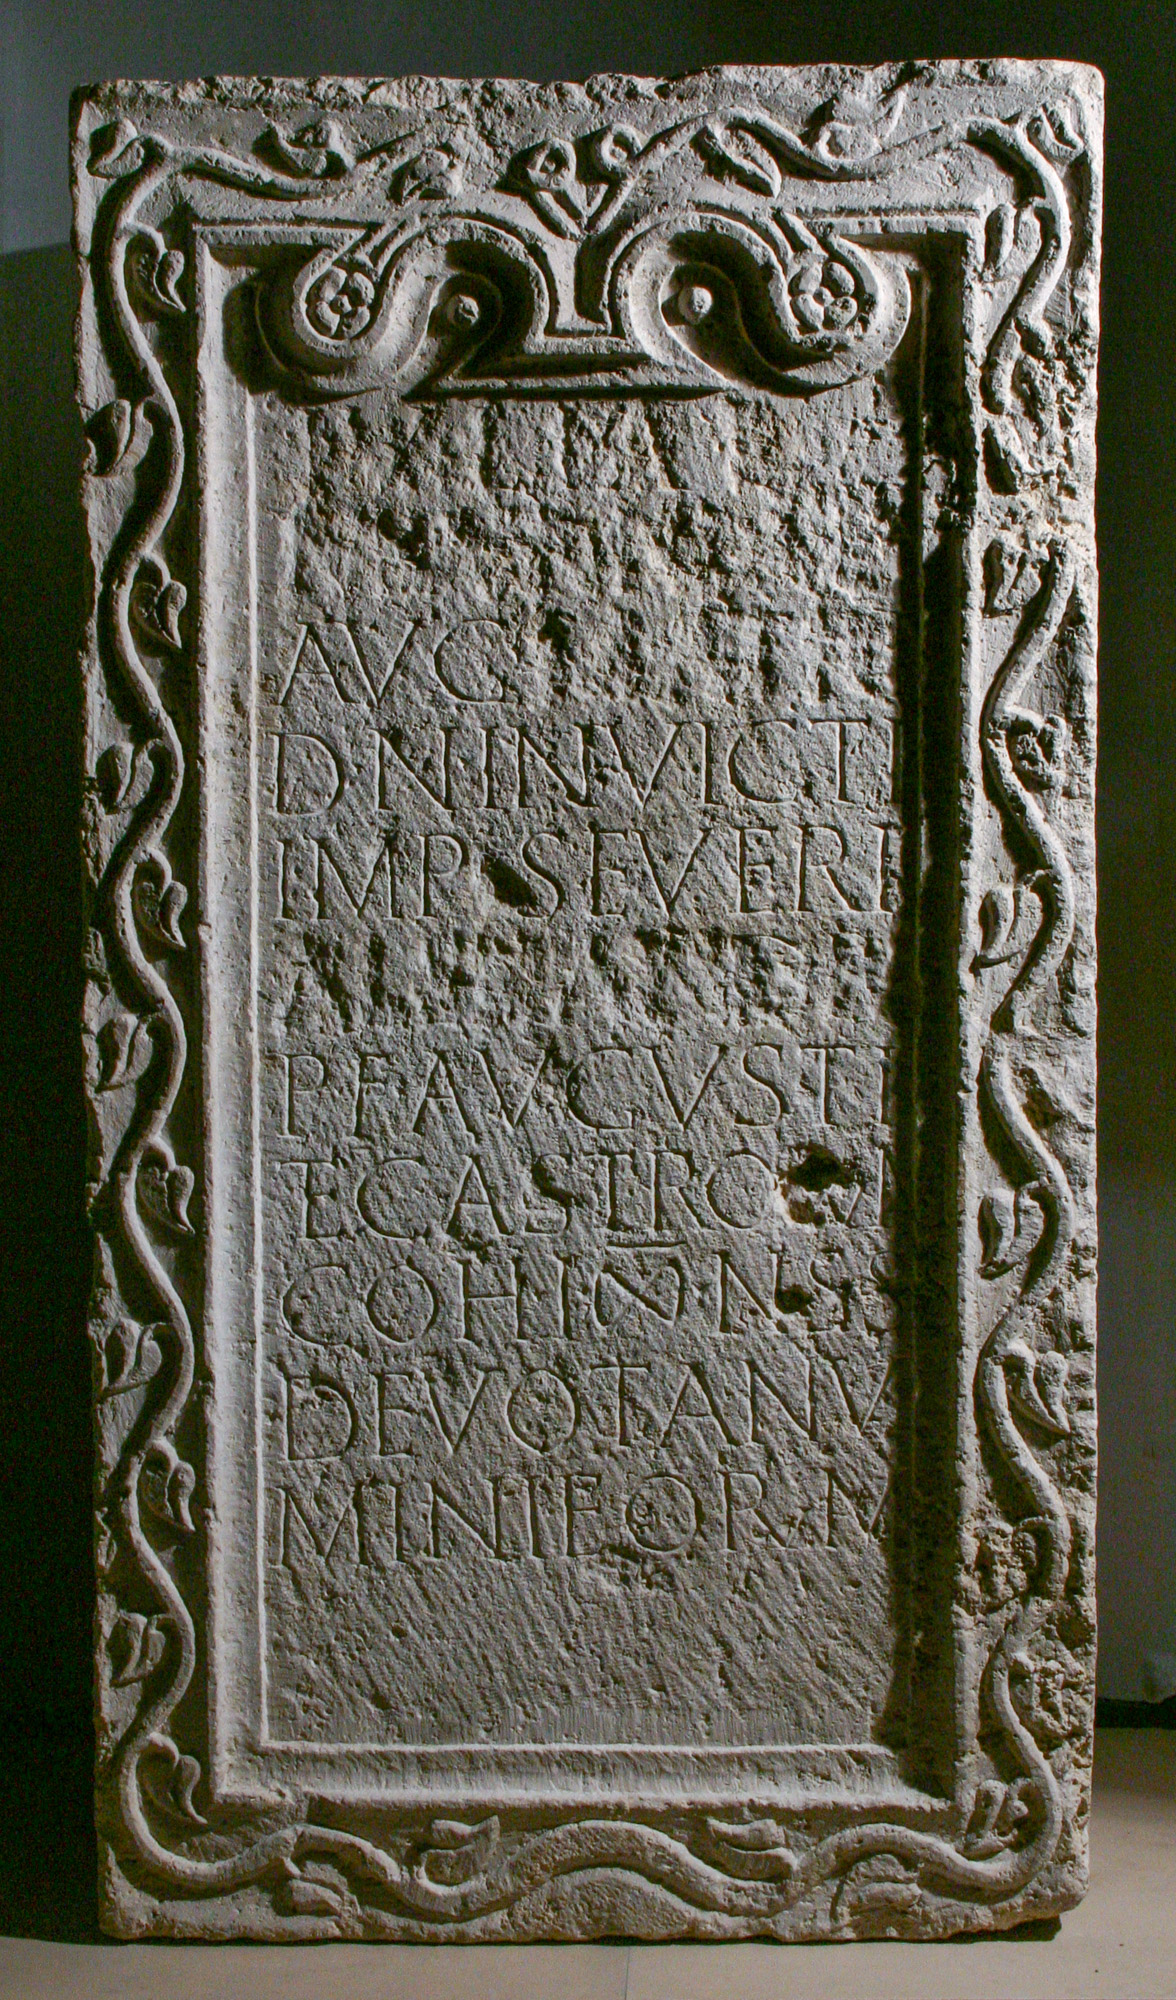 AVG
DNINVICTI
IMP SEVERI
ALEXANDRI
PFAVGVSTI
ETCASTRO
COHI ∞ NSS
DEVOTANV
MINIEORM